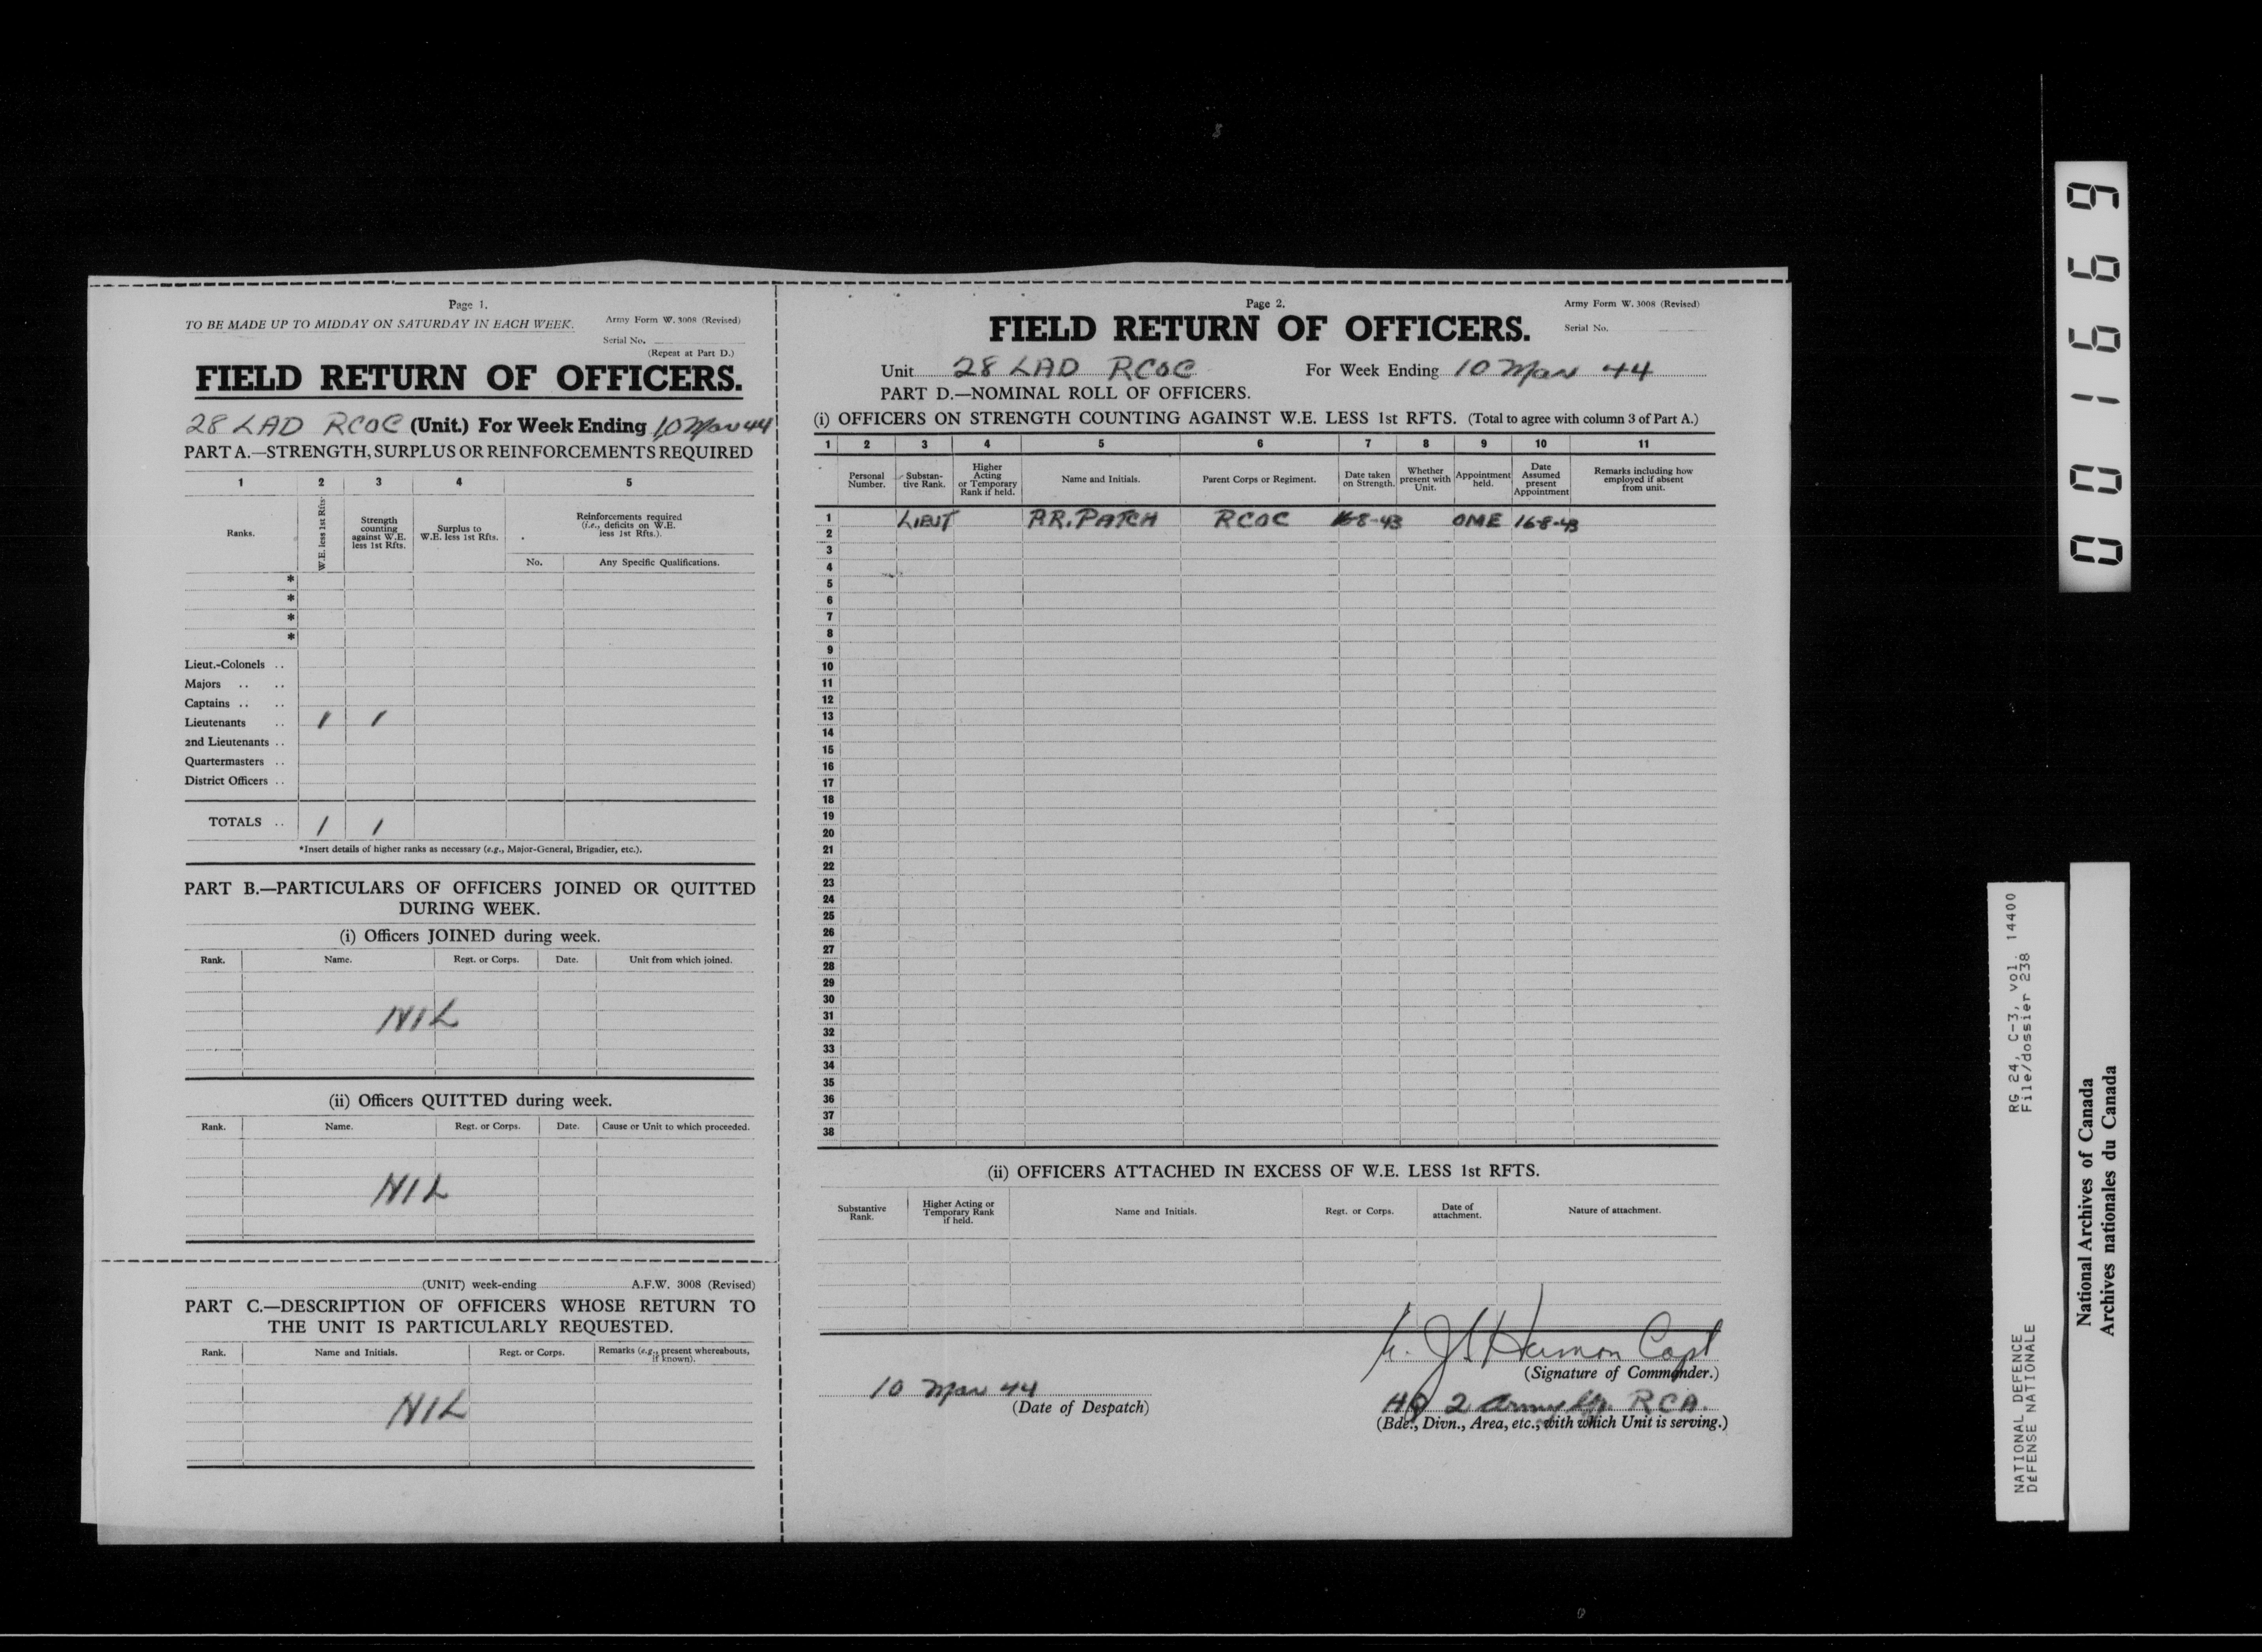 Page 1.
TO BE MADE UP TO MIDDAY ON SATURDAY IN EACH WEEK.
Army Form W. 3008 (Revised)
Serial No.
(Repeat at Part D.)
FIELD RETURN OF OFFICERS.
28 LAD RCOC (Unit.) For Week Ending 10 Mar 44
PART A.—STRENGTH, SURPLUS OR REINFORCEMENTS REQUIRED
1 2 3 4 5
Ranks. W.E. less 1st Rfts. Strength counting against W.E. less 1st Rfts. Surplus to W.E. less 1st Rfts. Reinforcements required (i.e., deficits on W.E. less 1st Rfts.).
No. Any Specific Qualifications.
*
*
*
*
Lieut.-Colonels ..
Majors .. ..
Captains .. ..
Lieutenants .. 1 1
2nd Lieutenants ..
Quartermasters ..
District Officers ..
TOTALS .. 1 1
*Insert details of higher ranks as necessary (e.g., Major-General, Brigadier, etc.).
PART B.—PARTICULARS OF OFFICERS JOINED OR QUITTED
DURING WEEK.
(i) Officers JOINED during week.
Rank. Name. Regt. or Corps. Date. Unit from which joined.
NIL
(ii) Officers QUITTED during week.
Rank. Name. Regt. or Corps. Date. Cause or Unit to which proceeded.
NIL
(UNIT) week-ending A.F.W. 3008 (Revised)
PART C.—DESCRIPTION OF OFFICERS WHOSE RETURN TO
THE UNIT IS PARTICULARLY REQUESTED.
Rank. Name and Initials. Regt. or Corps. Remarks (e.g., present whereabouts, if known).
NIL
Page 2.
Army Form W. 3008 (Revised)
FIELD RETURN OF OFFICERS.
Serial No.
Unit 28 LAD RCOC For Week Ending 10 Mar 44
PART D.—NOMINAL ROLL OF OFFICERS.
(i) OFFICERS ON STRENGTH COUNTING AGAINST W.E. LESS 1st RFTS. (Total to agree with column 3 of Part A.)
1 2 3 4 5 6 7 8 9 10 11
Personal Number. Substantive Rank. Higher Acting or Temporary Rank if held. Name and Initials. Parent Corps or Regiment. Date taken on Strength. Whether present with Unit. Appointment held. Date Assumed present Appointment Remarks including how employed if absent from unit.
1 LIEUT PATCH RCOC 16-8-43 OME 16-8-43
2
3
4
5
6
7
8
9
10
11
12
13
14
15
16
17
18
19
20
21
22
23
24
25
26
27
28
29
30
31
32
33
34
35
36
37
38
(ii) OFFICERS ATTACHED IN EXCESS OF W.E. LESS 1st RFTS.
Substantive Rank. Higher Acting or Temporary Rank if held. Name and Initials. Regt. or Corps. Date of attachment. Nature of attachment.
Capt
(Signature of Commander.)
10 Mar 44
(Date of Despatch)
HQ 2 Army Gp. RCA.
(Bde., Divn., Area, etc., with which Unit is serving.)
001669
RG 24, C-3, vol. 14400
File/dossier 238
NATIONAL DEFENCE
DÉFENSE NATIONALE
National Archives of Canada
Archives nationales du Canada